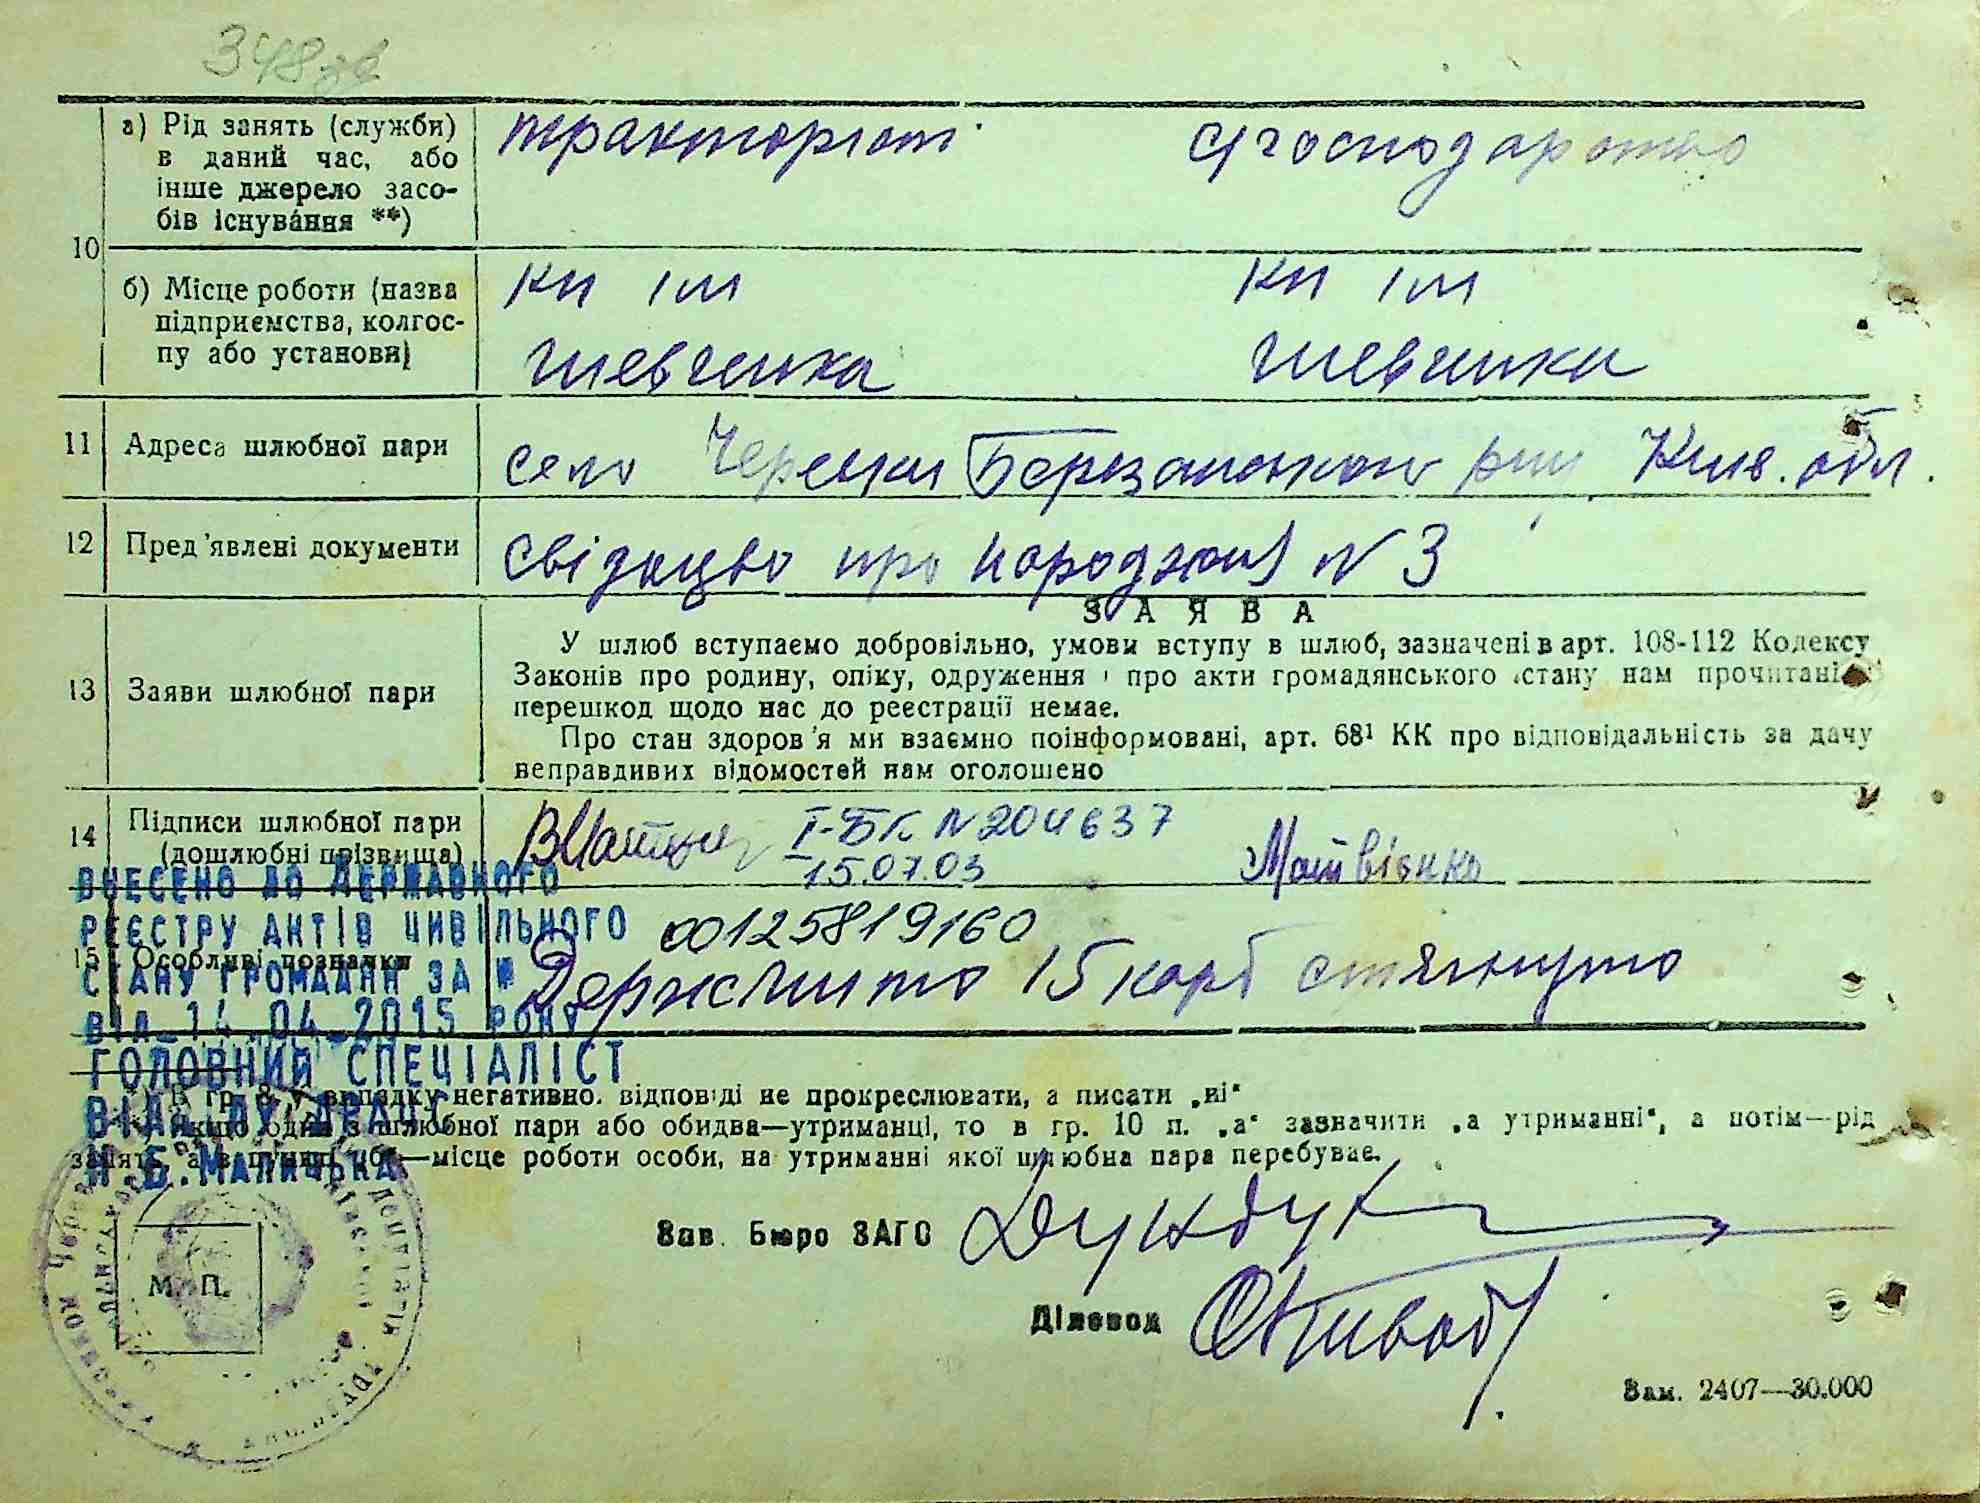 348зв
10
а) Рід занять (служби)
в даний час, або
інше джерело засо-
бів існування **)
тракторист
с/господарство
б) Місце роботи (назва
підприємства, колгос-
пу або установи)
кп ім
Шевченка
кп ім
Шевченка
11 Адреса шлюбної пари
село Черевки Березанського р-ну Київ. обл.
12 Пред'явлені документи
Свідоцтво про народження N 3
ЗАЯВА
13 Заяви шлюбної пари
У шлюб вступаємо добровільно, умови вступу в шлюб, зазначені в арт. 108-112 Кодексу
Законів про родину, опіку, одруження і про акти громадянського стану нам прочитані
перешкод щодо нас до реєстрації немає.
Про стан здоров'я ми взаємно поінформовані, арт. 68¹ КК про відповідальність за дачу
неправдивих відомостей нам оголошено
14 Підписи шлюбної пари
(дошлюбні прізвища)
I-БК N 204637
15.07.03
Матвієнко
ВНЕСЕНО ДО ДЕРЖАВНОГО
РЕЄСТРУ АКТІВ ЦИВІЛЬНОГО
СТАНУ ГРОМАДЯН ЗА №
00125819160
15 Особливі познаки
Держмито 15 карб стягнуто
ВІД 14.04.2015 РОКУ
ГОЛОВНИЙ СПЕЦІАЛІСТ
ВІДДІЛУ ДРАЦС
*) В гр. 8 у випадку негативно. відповіді не прокреслювати, а писати „ні“
якщо один з шлюбної пари або обидва—утриманці, то в гр. 10 п. „а“ зазначити „а утриманні“, а потім—рід
занять, а в пункті —місце роботи особи, на утриманні якої шлюбна пара перебуває.
М. П.
Зав. Бюро ЗАГС
Діловод
Зам. 2407—30.000